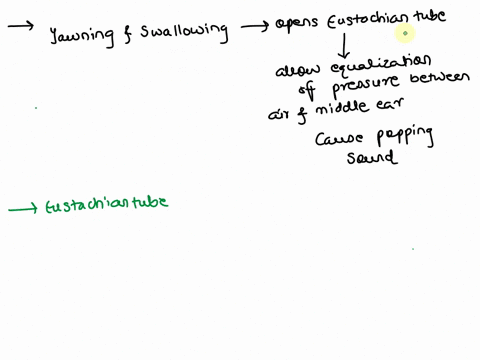 → Yawning & Swallowing → opens Eustachian tube
↓
allow equalization
of pressure between
air & middle ear
Cause popping
sound
→ Eustachian tube